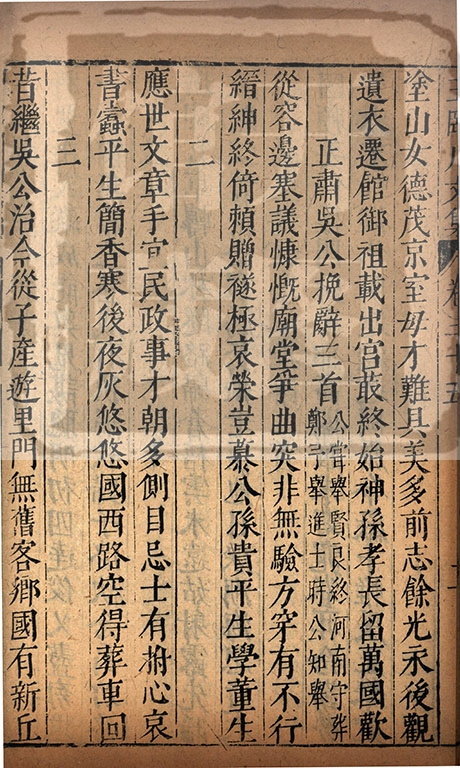 塗山女德茂京室母才難具美多前志餘光永後觀
遺衣遷館御祖載出宮哀終始神孫孝長留萬國歡
正肅吳公挽辭三首
公嘗舉賢良終河南守葬
鄭予舉進士時公知舉
從容邊塞議慷慨廟堂爭曲突非無驗方穿有不行
縉紳終倚賴贈襚極哀榮豈慕公孫貴平生學董生
二
應世文章手宜民政事才朝多側目忌士有拊心哀
書蠹平生簡香寒後夜灰悠悠國西路空得葬車回
三
昔繼吳公治今從子產遊里門無舊客鄉國有新丘